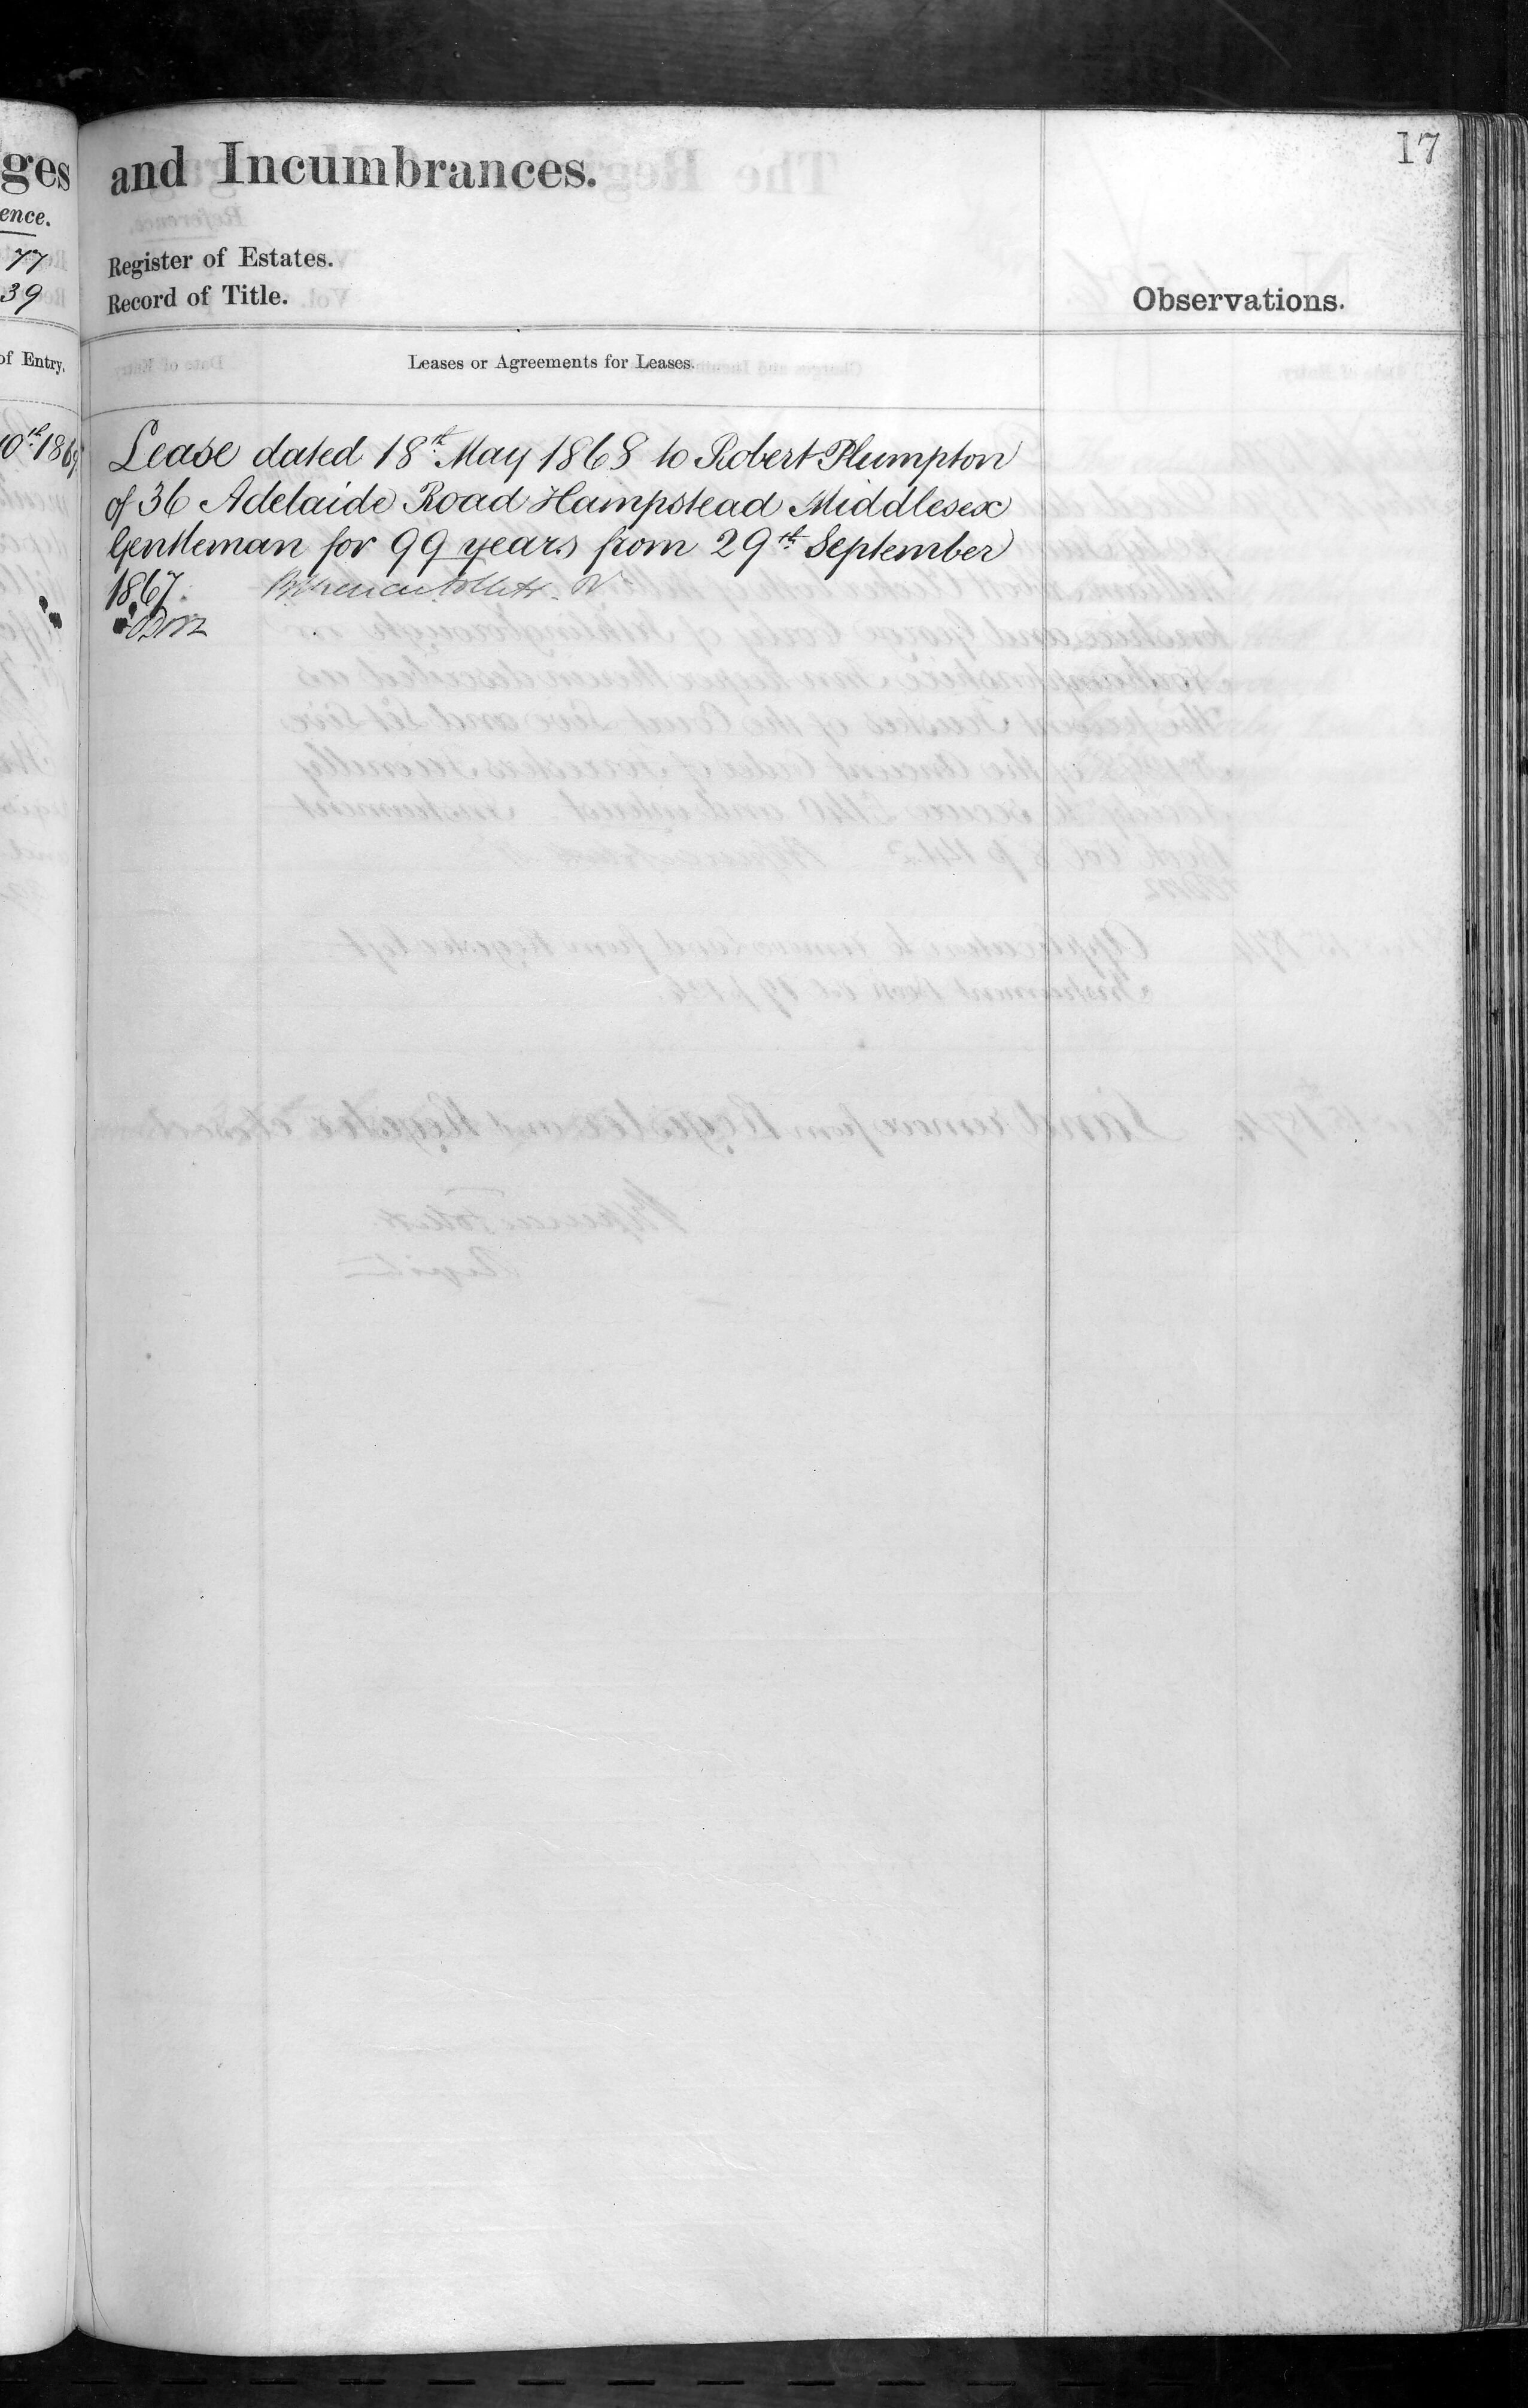 17
ges and Incumbrances.
ence.
77 Register of Estates.
39 Record of Title.
Observations.
of Entry.
Leases or Agreements for Leases.
10th 1869
Lease dated 18th May 1868 to Robert Plumpton
of 36 Adelaide Road Hampstead Middlesex
Gentleman for 99 years from 29th September
1867.